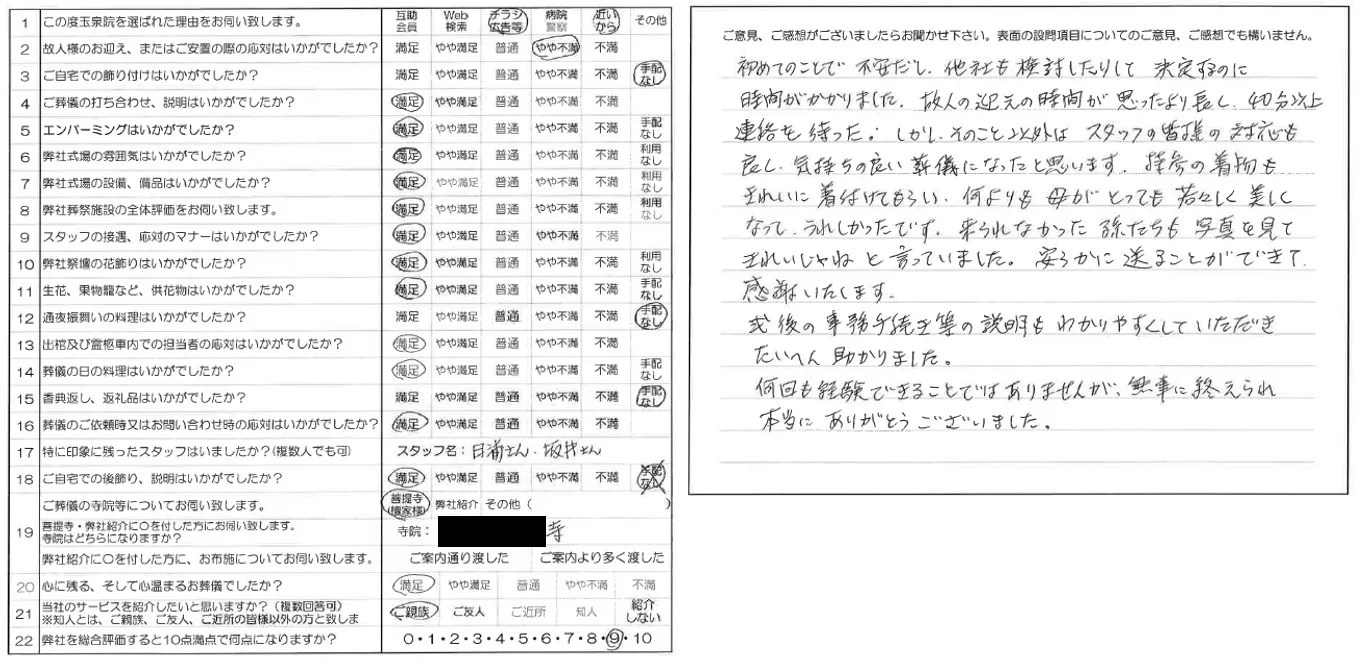 1 この度玉泉院を選ばれた理由をお伺い致します。 互助会員 Web検索 チラシ広告等 病院警察 近いから その他
2 故人様のお迎え、またはご安置の際の応対はいかがでしたか? 満足 やや満足 普通 やや不満 不満
3 ご自宅での飾り付けはいかがでしたか? 満足 やや満足 普通 やや不満 不満 手配なし
4 ご葬儀の打ち合わせ、説明はいかがでしたか? 満足 やや満足 普通 やや不満 不満
5 エンバーミングはいかがでしたか? 満足 やや満足 普通 やや不満 不満 手配なし
6 弊社式場の雰囲気はいかがでしたか? 満足 やや満足 普通 やや不満 不満 利用なし
7 弊社式場の設備、備品はいかがでしたか? 満足 やや満足 普通 やや不満 不満 利用なし
8 弊社葬祭施設の全体評価をお伺い致します。 満足 やや満足 普通 やや不満 不満 利用なし
9 スタッフの接遇、応対のマナーはいかがでしたか? 満足 やや満足 普通 やや不満 不満
10 弊社祭壇の花飾りはいかがでしたか? 満足 やや満足 普通 やや不満 不満 利用なし
11 生花、果物籠など、供花物はいかがでしたか? 満足 やや満足 普通 やや不満 不満 手配なし
12 通夜振舞いの料理はいかがでしたか? 満足 やや満足 普通 やや不満 不満 手配なし
13 出棺及び霊柩車内での担当者の応対はいかがでしたか? 満足 やや満足 普通 やや不満 不満
14 葬儀の日の料理はいかがでしたか? 満足 やや満足 普通 やや不満 不満 手配なし
15 香典返し、返礼品はいかがでしたか? 満足 やや満足 普通 やや不満 不満 手配なし
16 葬儀のご依頼時又はお問い合わせ時の応対はいかがでしたか? 満足 やや満足 普通 やや不満 不満
17 特に印象に残ったスタッフはいましたか?(複数人でも可) スタッフ名: 日浦さん、坂井さん
18 ご自宅での後飾り、説明はいかがでしたか? 満足 やや満足 普通 やや不満 不満 手配なし
19 ご葬儀の寺院等についてお伺い致します。 菩提寺(檀家様) 弊社紹介 その他( )
菩提寺・弊社紹介に○を付した方にお伺い致します。
寺院はどちらになりますか? 寺院: 寺
弊社紹介に○を付した方に、お布施についてお伺い致します。 ご案内通り渡した ご案内より多く渡した
20 心に残る、そして心温まるお葬儀でしたか? 満足 やや満足 普通 やや不満 不満
21 当社のサービスを紹介したいと思いますか?(複数回答可) ご親族 ご友人 ご近所 知人 紹介しない
※知人とは、ご親族、ご友人、ご近所の皆様以外の方と致しま
22 弊社を総合評価すると10点満点で何点になりますか? 0・1・2・3・4・5・6・7・8・9・10
ご意見、ご感想がございましたらお聞かせ下さい。表面の設問項目についてのご意見、ご感想でも構いません。
初めてのことで 不安だし、他社も検討したりして 決定するのに
時間がかかりました。故人の迎えの時間が思ったより長く、40分以上
連絡を待った。しかし、そのこと以外は スタッフの皆様の対応も
良く、気持ちの良い葬儀になったと思います。持参の着物も
きれいに着付けてもらい、何よりも母がとっても若々しく美しく
なって、うれしかったです。来られなかった孫たちも写真を見て
きれいじゃねと言っていました。安らかに送ることができて、
感謝いたします。
式後の事務手続き等の説明も わかりやすくしていただき
たいへん助かりました。
何回も経験できることではありませんが、無事に終えられ
本当に ありがとうございました。